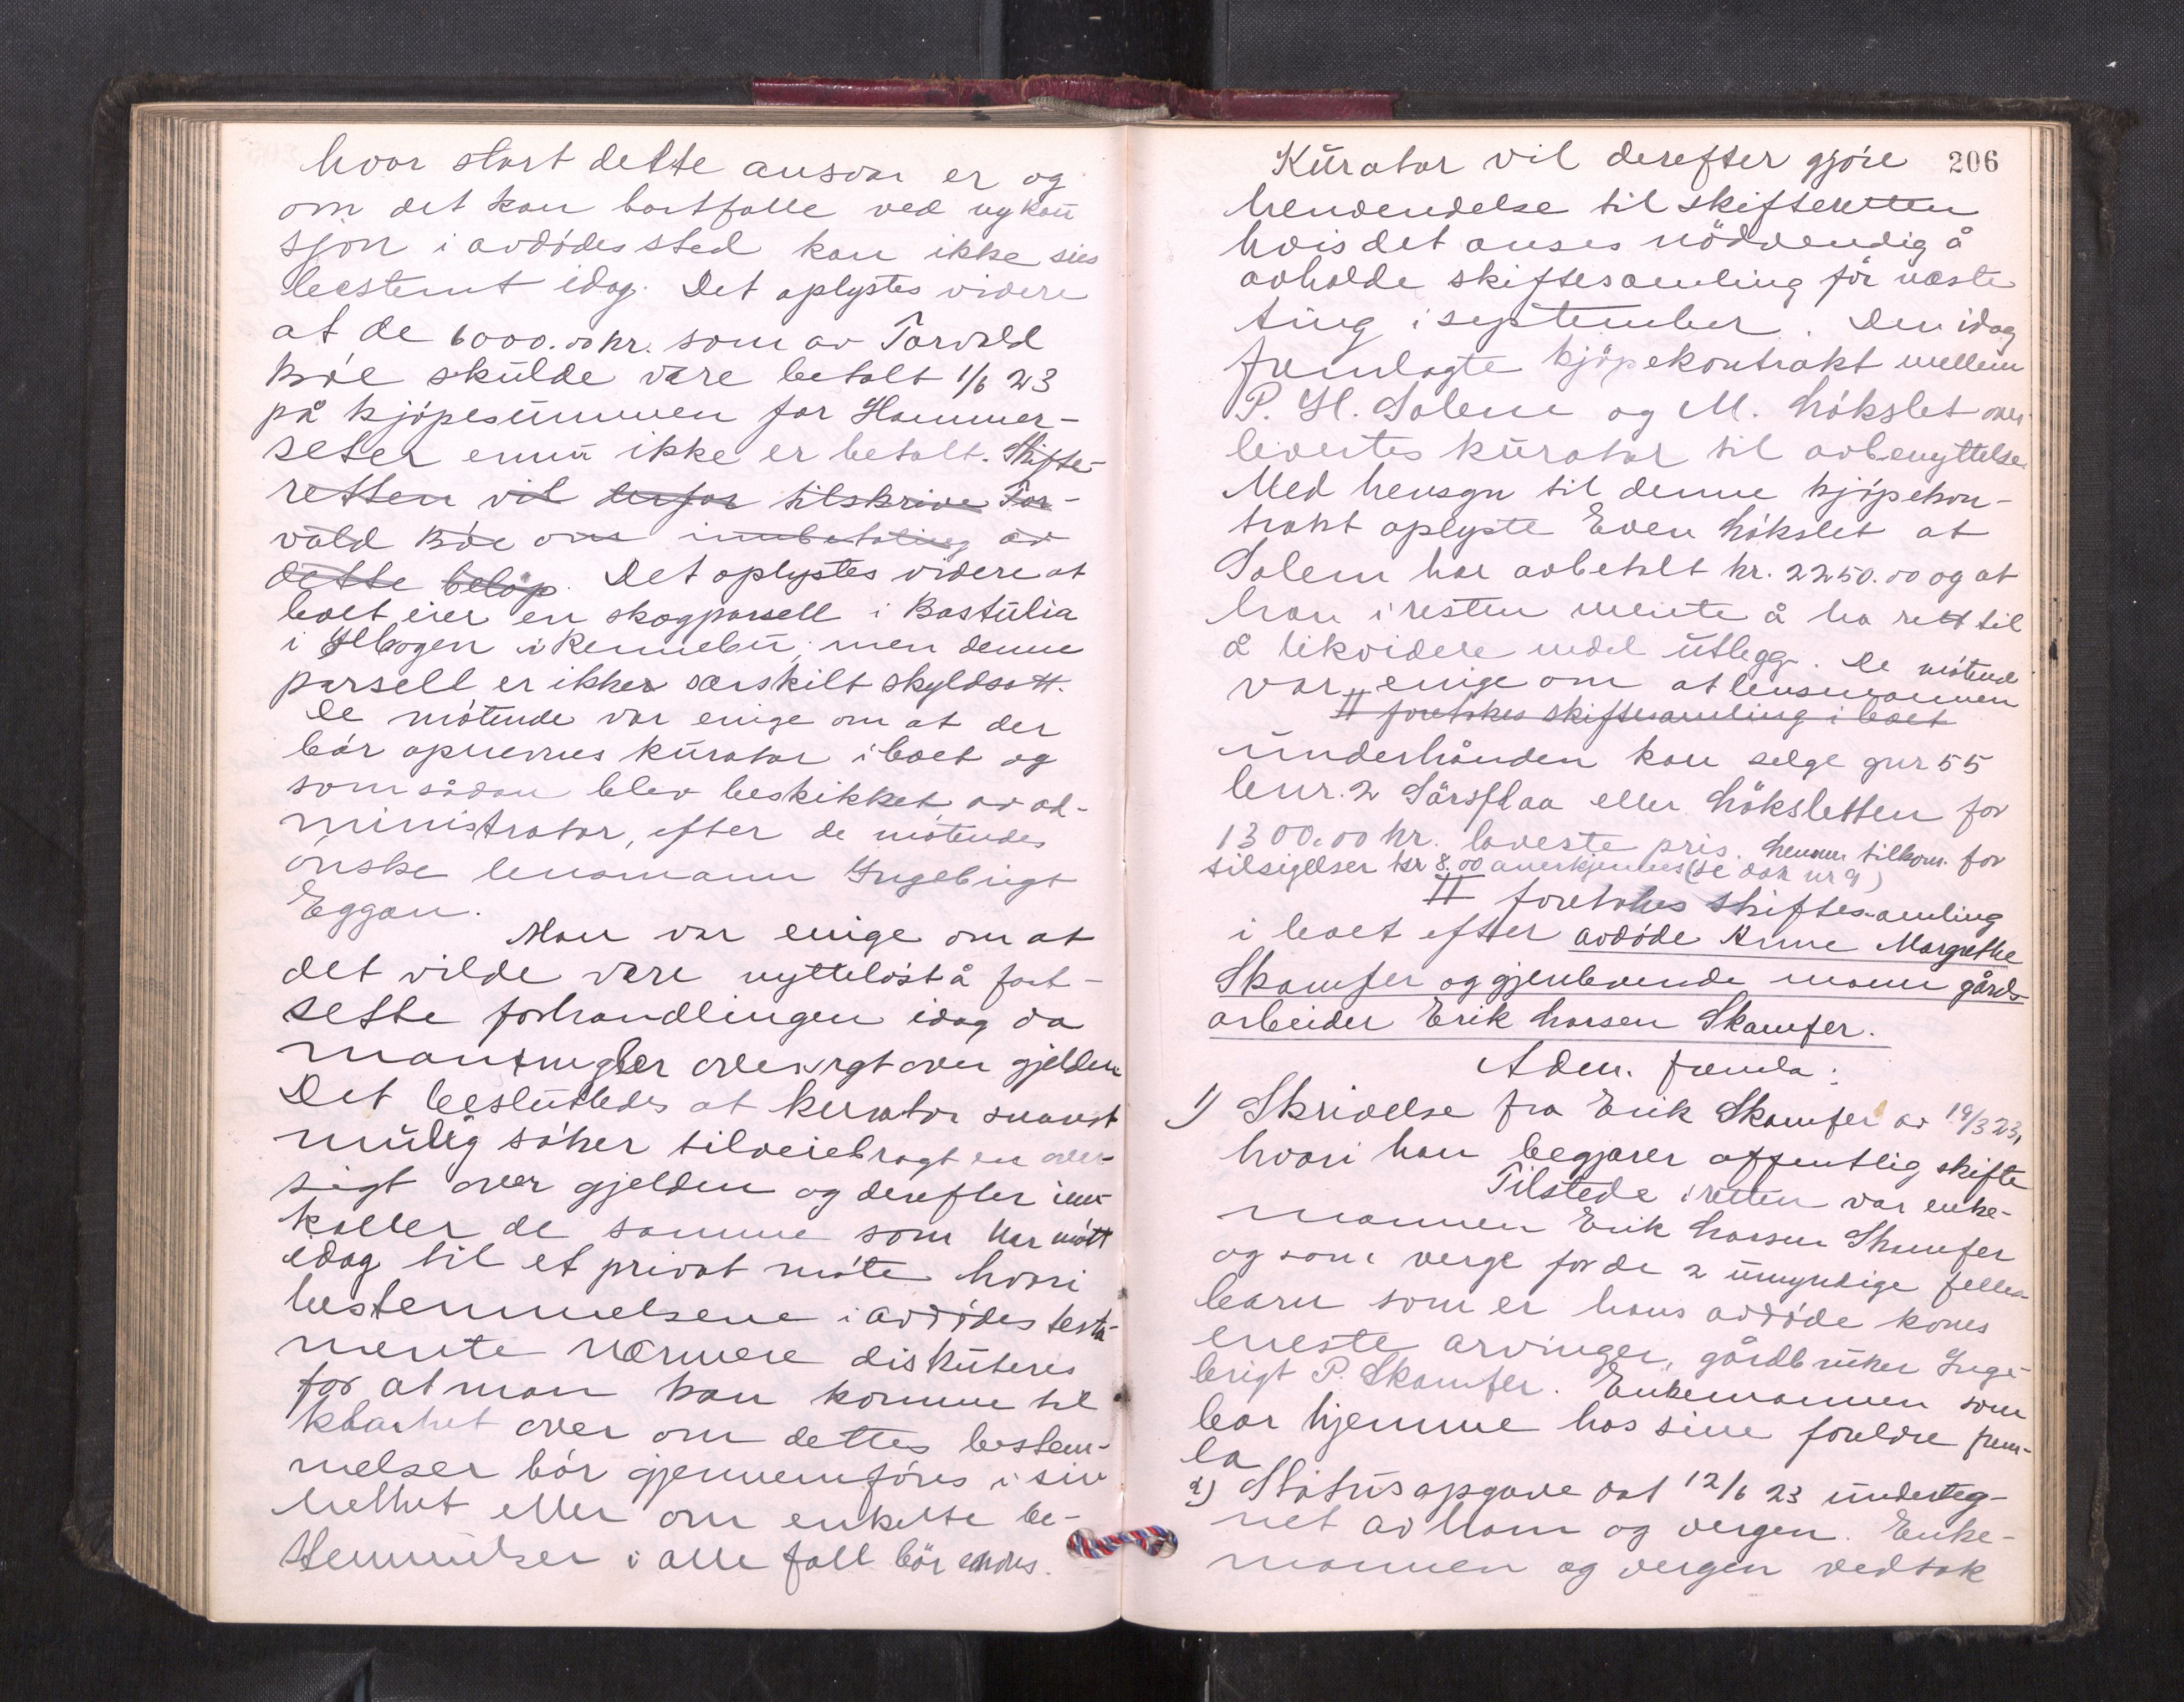 hvor stort dette ansvar er og
om det kan bortfalle ved ny kau
sjon i avdødes sted kan ikke sies
bestemt idag. Det oplystes videre
at de 6000.00 kr. som av Torvald
Böe skulde være betalt 1/6 23
på kjöpesummen for Hammer-
seter ennu ikke er betalt. Skifte-
retten vil derfor tilskrive Tor-
vald Böe om innbetaling av
dette belöp. Det oplystes videre at
boet eier en skogparsell i Bastulia
i Ilbogen i Rennebu, men denne
parsell er ikke særskilt skyldsatt.
De mötende var enige om at der
bör opnevnes kurator i boet og
som sådan blev beskikket av ad-
ministrator, efter de mötendes
önske lensmann Ingebrigt
Eggan.
Man var enige om at
det vilde være nyttelöst å fort-
sette forhandlingen idag da
man mangler oversigt over gjelden
Det besluttedes at kurator snarest
mulig söker tilveiebragt en over-
sigt over gjelden og derefter inn-
kaller de samme som har mött
idag til et privat möte hvori
bestemmelsene i avdödes testa-
mente nærmere diskuteres
for at man kan komme til
klarhet over om dettes bestem-
melser bör gjennemföres i sin
helhet eller om enkelte be-
stemmelser i alle fall bör endres.
206
Kurator vil derefter gjöre
henvendelse til skifteretten
hvis det anses nödvendig å
avholde skiftesamling för næste
ting i september. Den idag
fremlagte kjöpekontrakt mellem
P. H. Solem og M. Lökslet over-
levertes kurator til avbenyttelse.
Med hensyn til denne kjöpekon-
trakt oplyste Even Lökslet at
Solem har avbetalt kr. 2250.00 og at
han i resten mente å ha rett til
å likvidere endel utlegg. De mötende
var enige om at lensmannen
# foretokes skiftesamling i boet
underhånden kan selge gnr 55
bnr. 2 Sörsflaa eller Löksletten for
1300.00 kr. laveste pris. Lensm. tilkom. for
tilsigelser kr 8.00 anerkjennes (se dok nr 9)
# foretokes skiftesamling
i boet efter avdöde Anne Margrethe
Skamfer og gjenlevende mann gårds-
arbeider Erik Larsen Skamfer.
Adm. fremla:
1) Skrivelse fra Erik Skamfer av 19/3 23,
hvori han begjærer offentlig skifte
Tilstede i retten var enke-
mannen Erik Larsen Skamfer
og som verge for de 2 umyndige felles-
barn som er hans avdöde kones
eneste arvinger, gårdbruker Inge-
brigt P. Skamfer. Enkemannen som
bor hjemme hos sine foreldre frem-
la
2) Statusopgave dat 12/6 23 underteg-
net av ham og vergen. Enke-
mannen og vergen vedtok